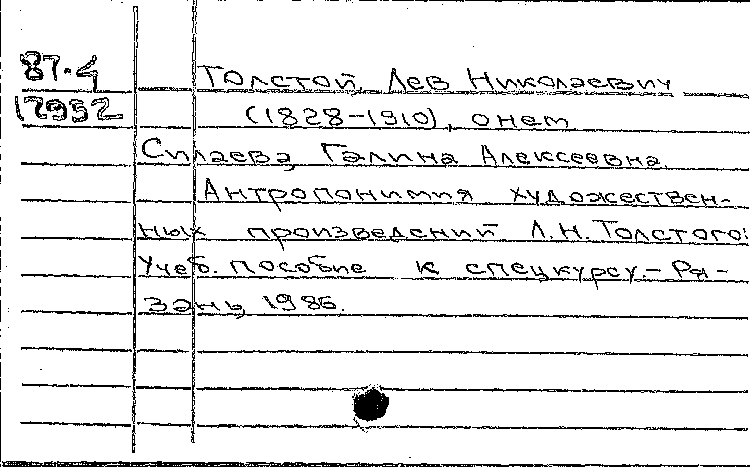 87.4
17952
Толстой, Лев Николаевич
(1828-1910), о нем
Силаева, Галина Алексеевна.
Антропонимия художествен-
ных произведений Л.Н.Толстого:
Учеб. пособие к спецкурсу.- Ря-
зань, 1986.